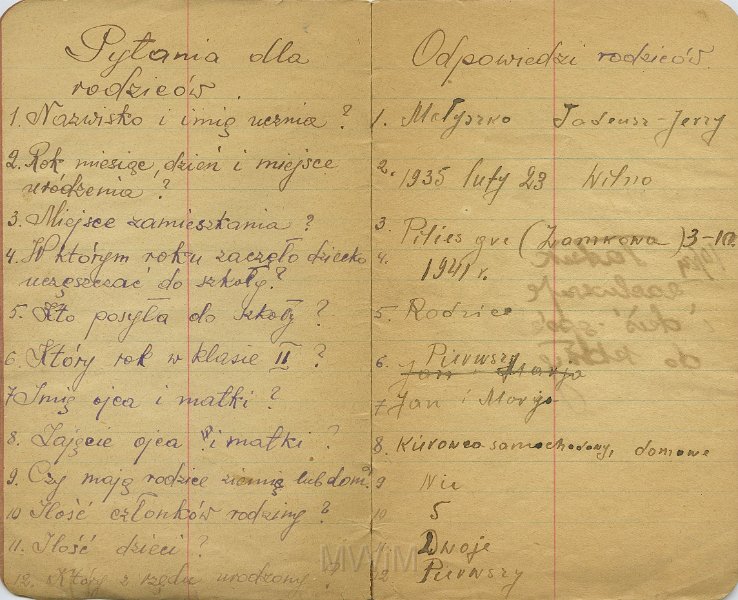 Pytania dla
rodziców.
1. Nazwisko i imię ucznia?
2. Rok miesiąc, dzień i miejsce
urodzenia?
3. Miejsce zamieszkania?
4. W którym roku zaczęło dziecko
uczęszczać do szkoły?
5. Kto posyła do szkoły?
6. Który rok w klasie II?
7 Imię ojca i matki?
8. Zajęcie ojca i matki?
9. Czy mają rodzice ziemię lub dom?
10 Ilość członków rodziny?
11. Ilość dzieci?
12. Który z rzędu urodzony?
Odpowiedzi rodziców.
1. Małyszko Tadeusz-Jerzy
2. 1935 luty 23 Wilno
3. Pilies gve (Zamkowa) 3-10.
4. 1941 r.
5. Rodzice
6 Pierwszy
Jan i Marja
7 Jan i Marja
8. Kierowca samochodowy, domowe
9 Nie
10 5
11. Dwoje
12 Pierwszy
MWiM